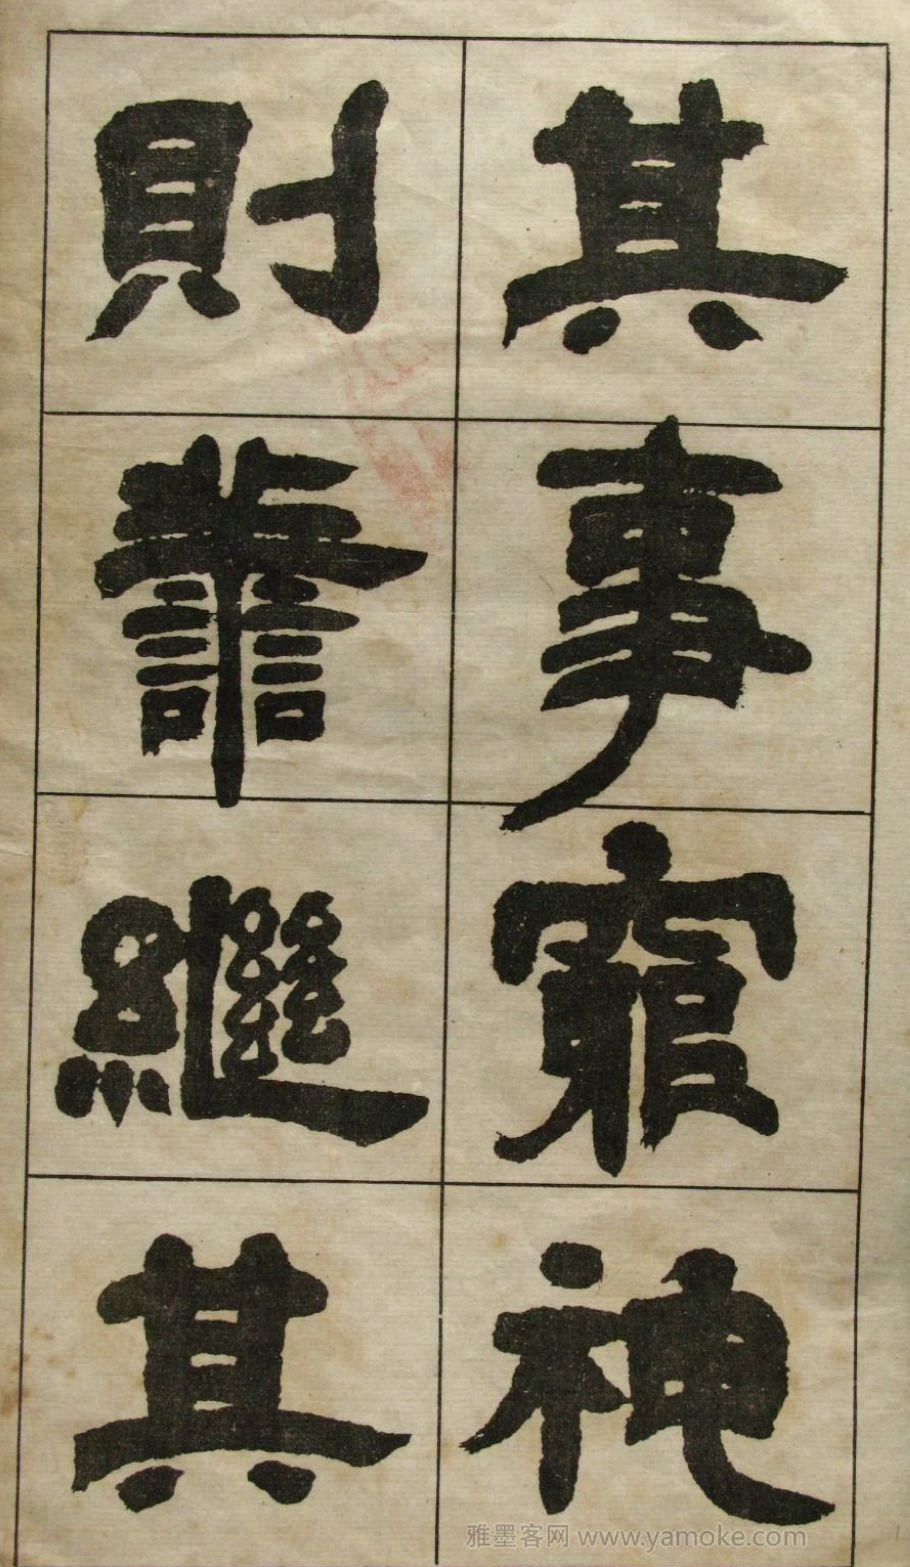 其事竆神
則譱繼其
雅墨客网 www.yamoke.com